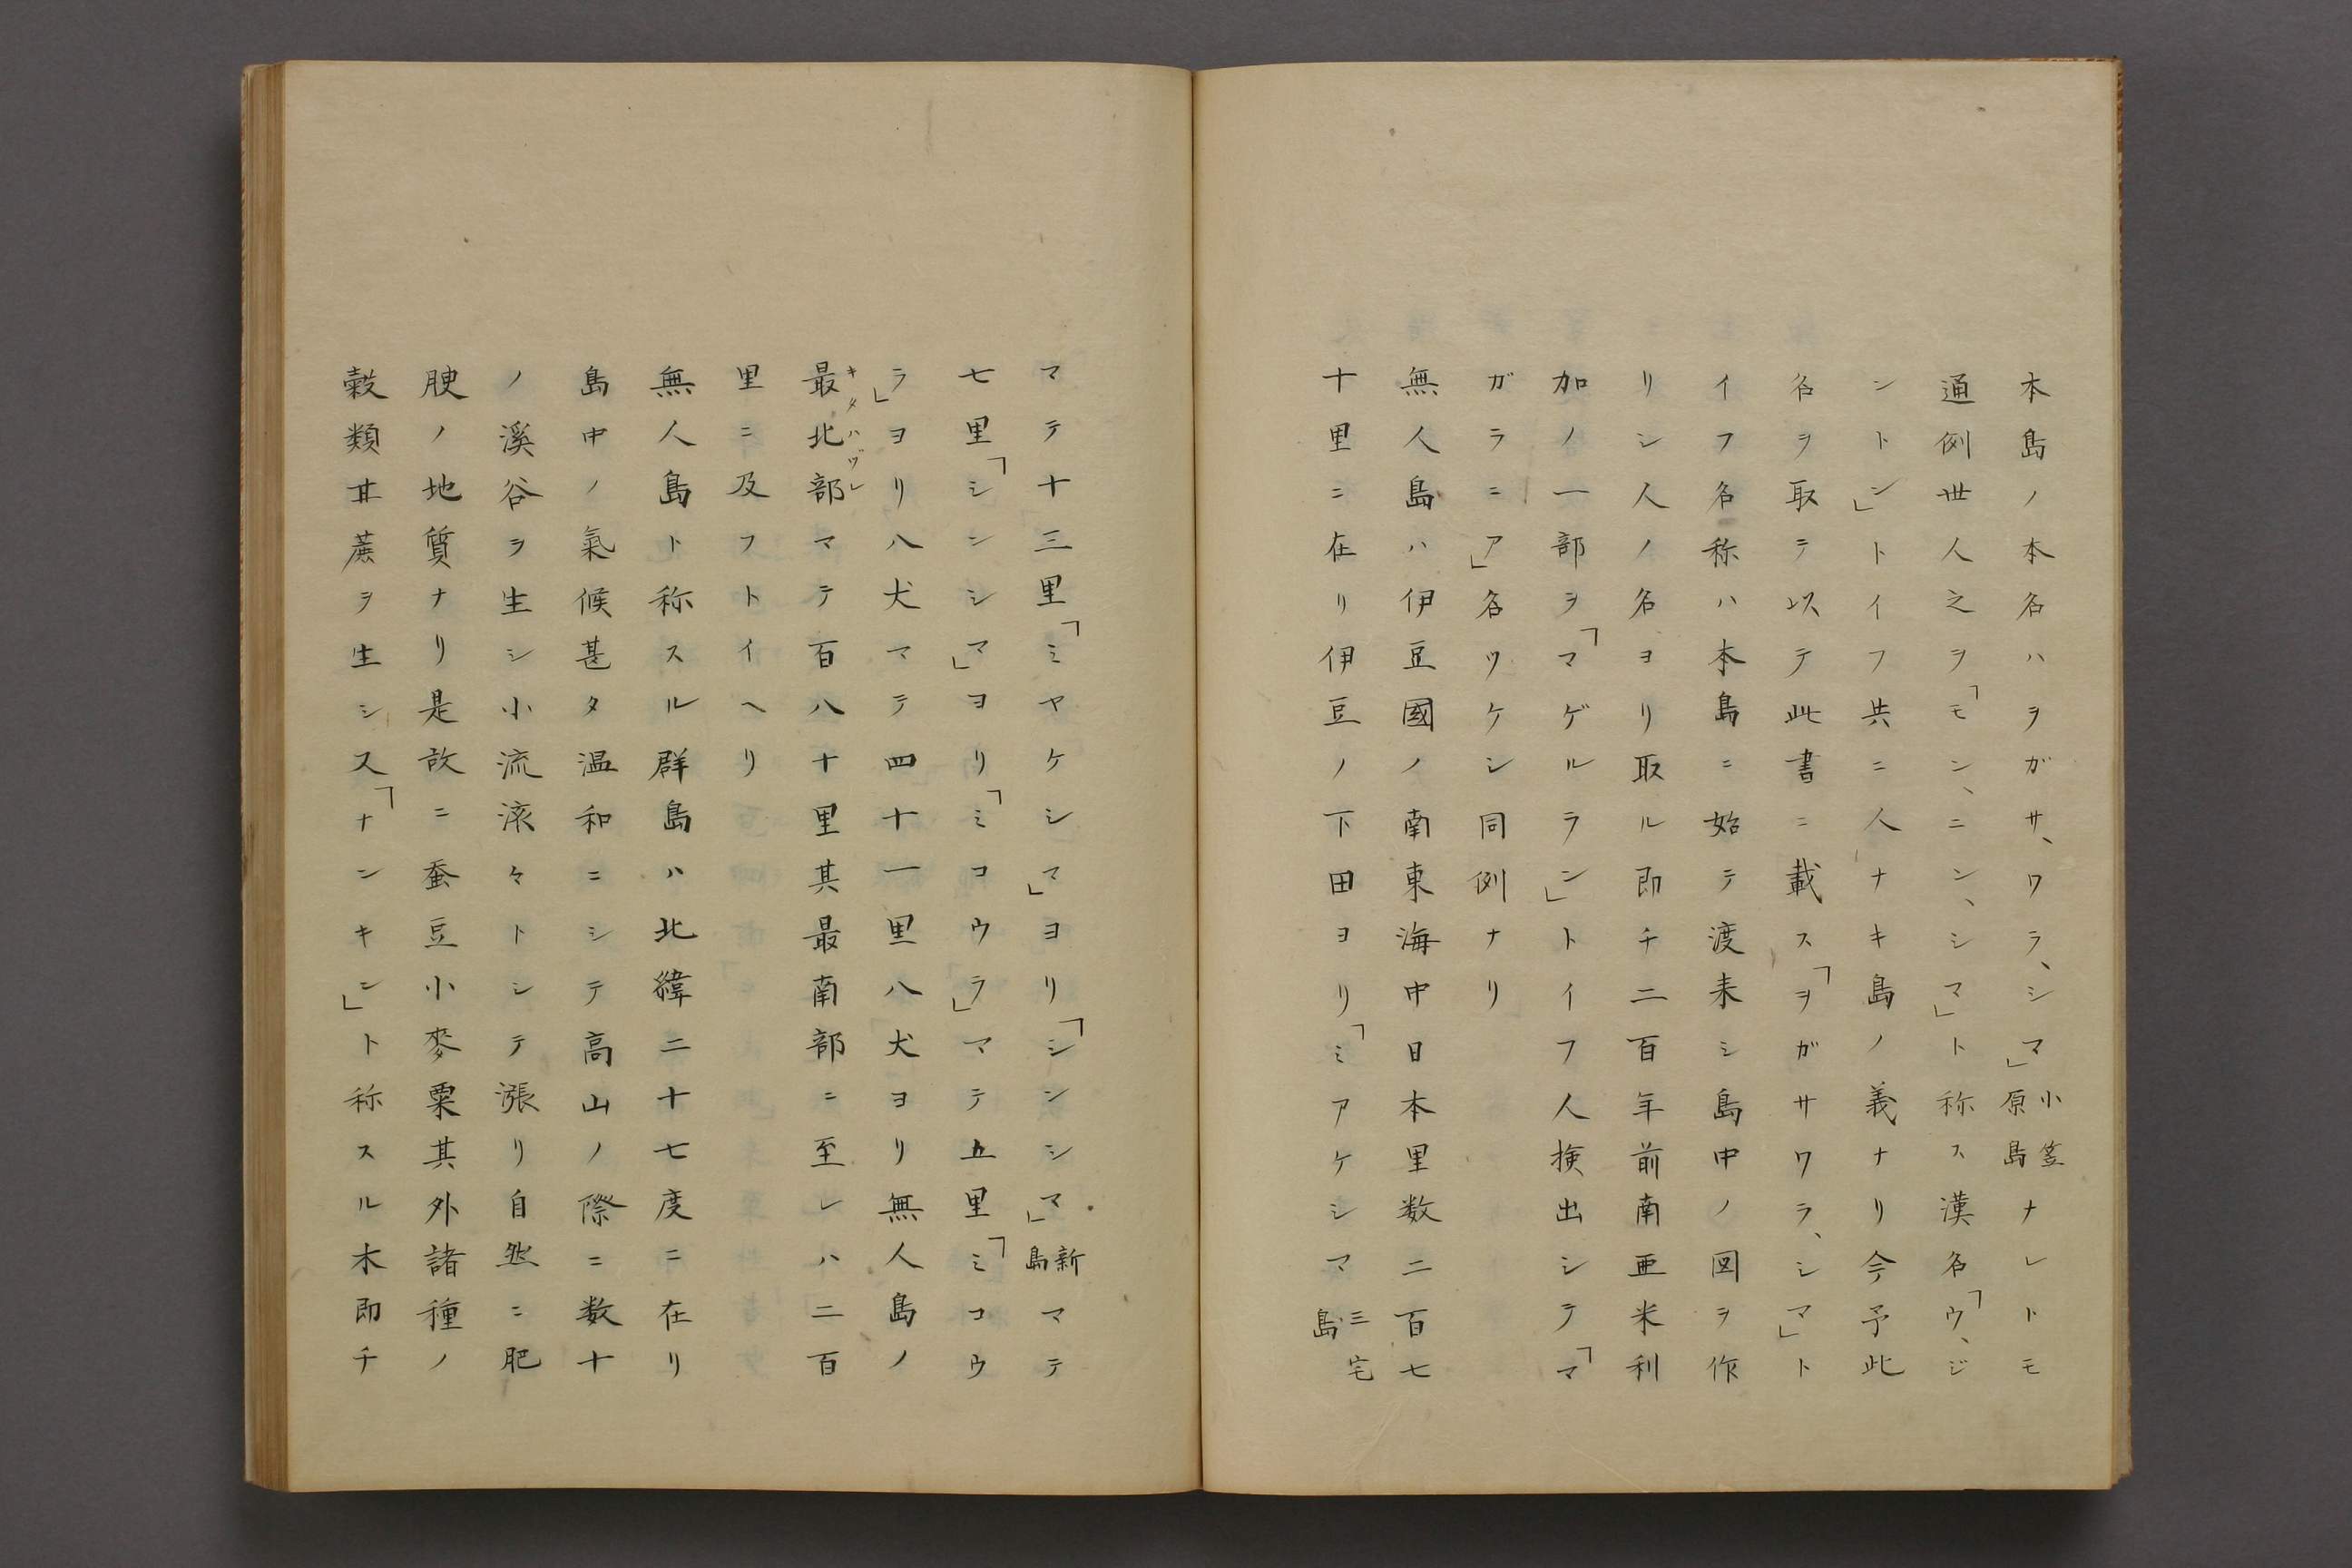 本島ノ本名ハヲガサ、ワラ、シマ」小笠原島ナレトモ
通例世人之ヲ「モン、ニン、シマ」ト称ス漢名「ウ、ジ
ント」ン」トイフ共ニ人ナキ島ノ義ナリ今予此
名ヲ取テ以テ此書ニ載ス「ヲガサワラ、シマ」ト
イフ名称ハ本島ニ始テ渡来シ島中ノ図ヲ作
リシ人ノ名ヨリ取ル即チ二百年前南亜米利
加ノ一部ヲ「マゲルラン」トイフ人検出シテ「マ
ガラニア」名ツケシ同例ナリ
無人島ハ伊豆國ノ南東海中日本里数二百七
十里ニ在リ伊豆ノ下田ヨリ「ミアケシマ三宅島
マテ十三里「ミヤケシマ」ヨリ「シンシマ」新島マテ
七里「シンシマ」ヨリ「ミコウラ」マテ五里「ミコウ
ラ」ヨリ八犬マテ四十一里八犬ヨリ無人島ノ
最北部キタハヅレマテ百八十里其最南部ニ至レハ二百
里ニ及フトイヘリ
無人島ト称スル群島ハ北緯二十七度ニ在リ
島中ノ氣候甚タ温和ニシテ高山ノ際ニ数十
ノ溪谷ヲ生シ小流滾々トシテ漲リ自然ニ肥
腴ノ地質ナリ是故ニ蚕豆小麥粟其外諸種ノ
穀類甘蔗ヲ生シス「ナンキン」ト称スル木即チ